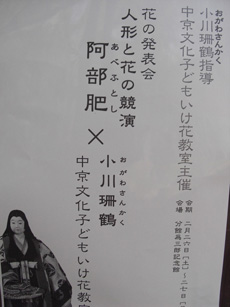 おがわさんかく
小川珊鶴指導
中京文化子どもいけ花教室主催
会期 二月二六日[土]〜二七日[
会場
花の発表会
人形と花の競演
あべふとし
阿部肥×小川珊鶴
おがわさんかく
中京文化子どもいけ花教